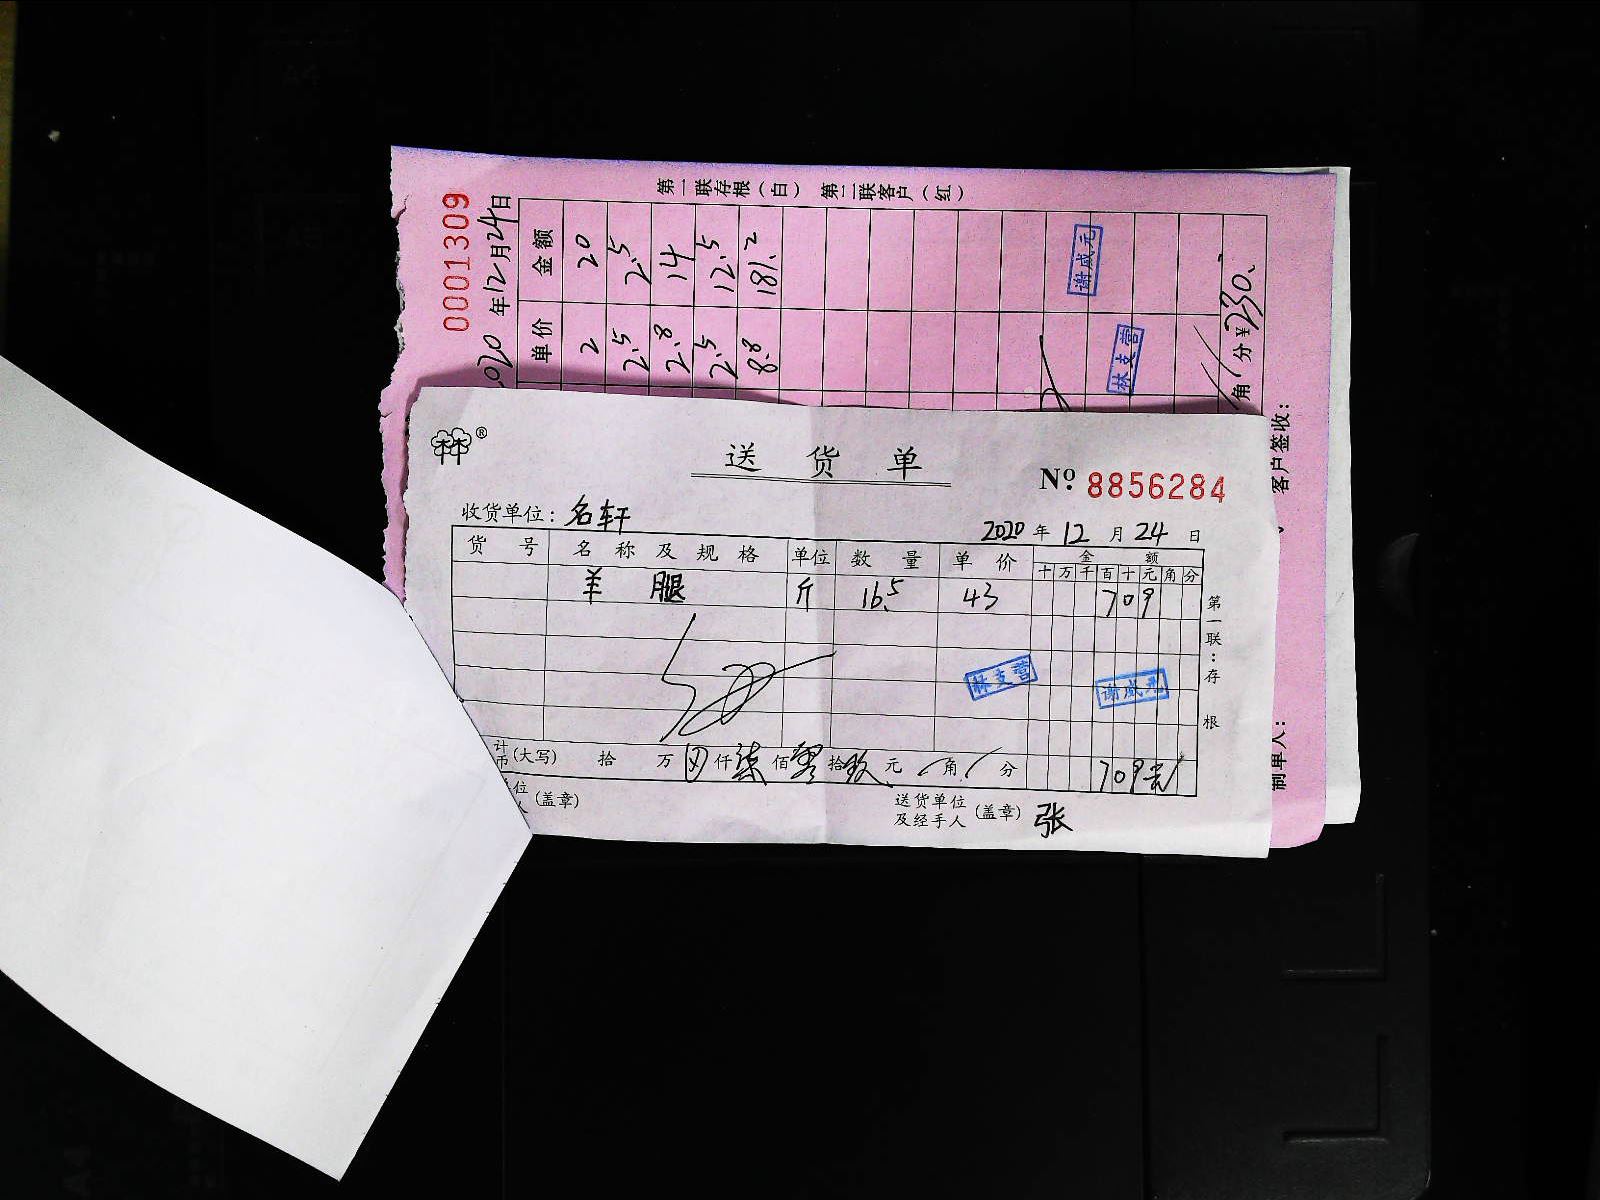 0001309
2020年12月24日
第一联存根（白） 第二联客户（红）
单价 金额
2 20
2.5 2.5
2.8 14
2.5 12.5
8.8 181.2
谢咸元
林支营
角 分 ¥230
客户签收：
制单人：
林 ®
送货单
№ 8856284
收货单位：名轩
2020年12月24日
货号 名称及规格 单位 数量 单价 金额
十万千百十元角分
羊腿 斤 16.5 43 709
林支营 谢咸元
计
币 (大写) 拾 万 仟柒佰零拾玖元 角 分 709元
第一联：存根
位
人 (盖章)
送货单位
及经手人 (盖章) 张